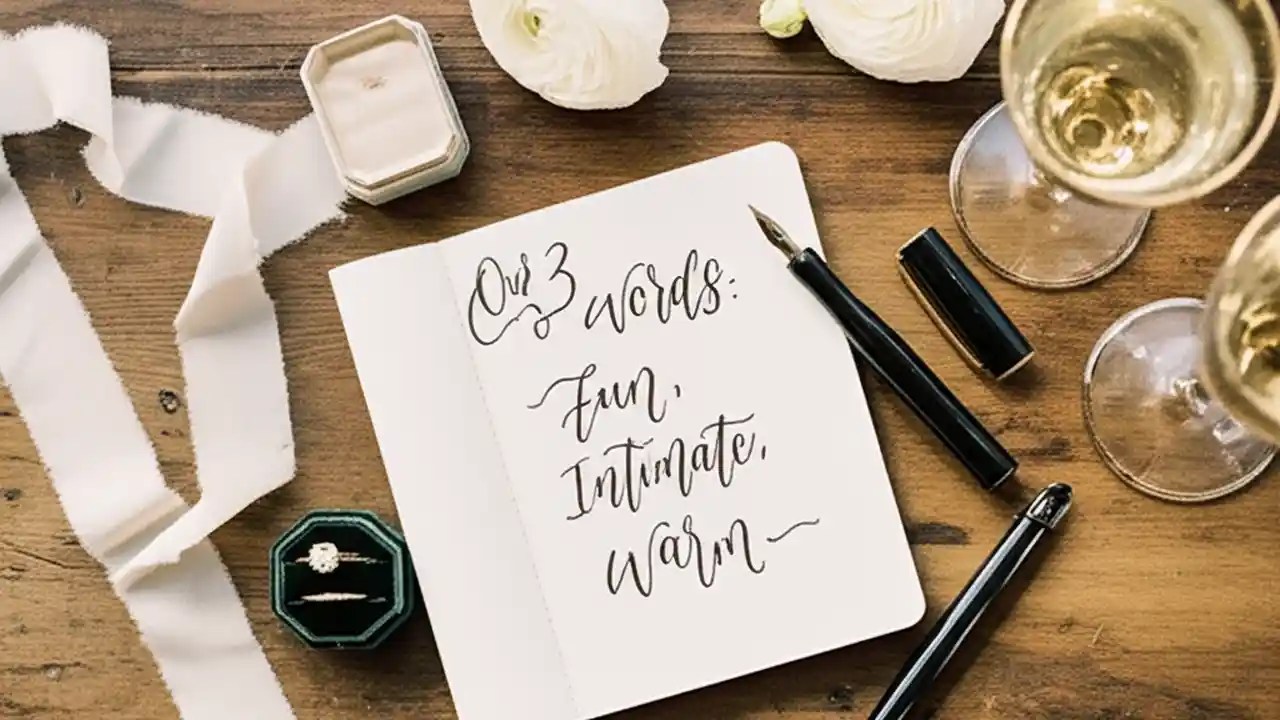 Our 3 words:
Fun,
Intimate,
Warm